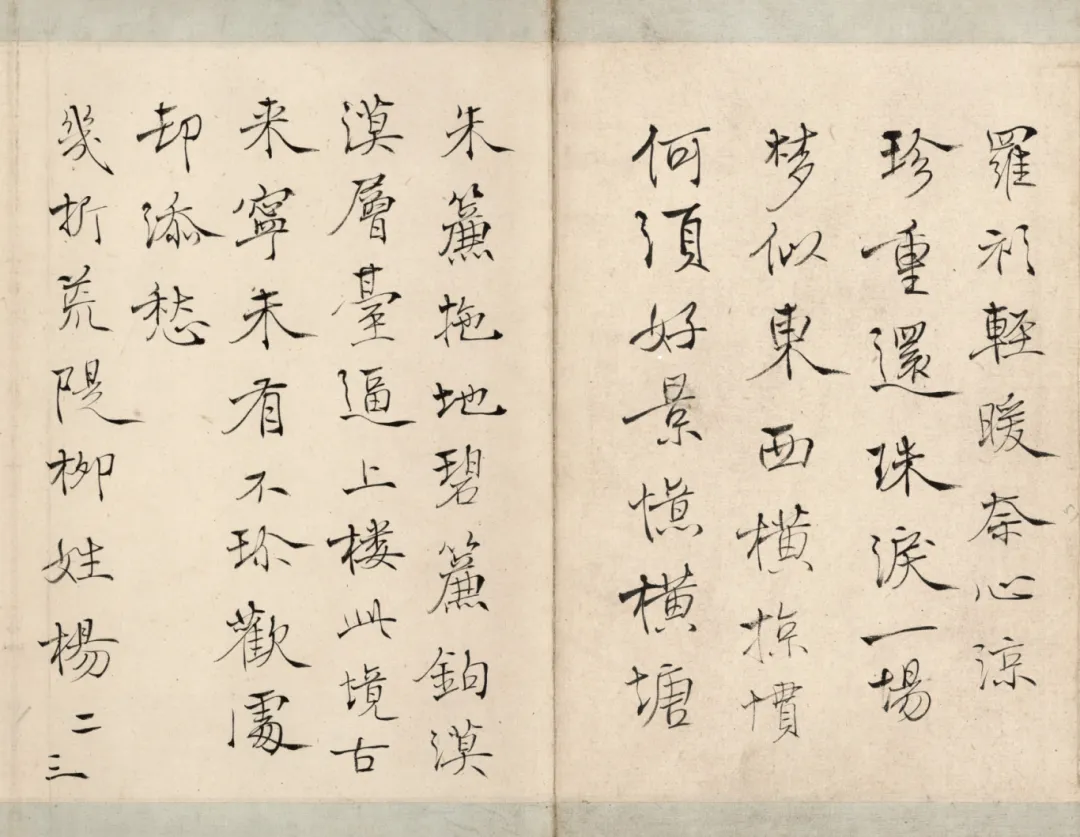 羅衫輕暖奈心涼
珍重還珠淚一場
梦似東西橫掠慣
何須好景憶橫塘
朱簾拖地碧簾鉤漠
漠層臺逼上楼此境古
来寧未有不珎歡處
却添愁
幾折荒隄柳姓楊二三